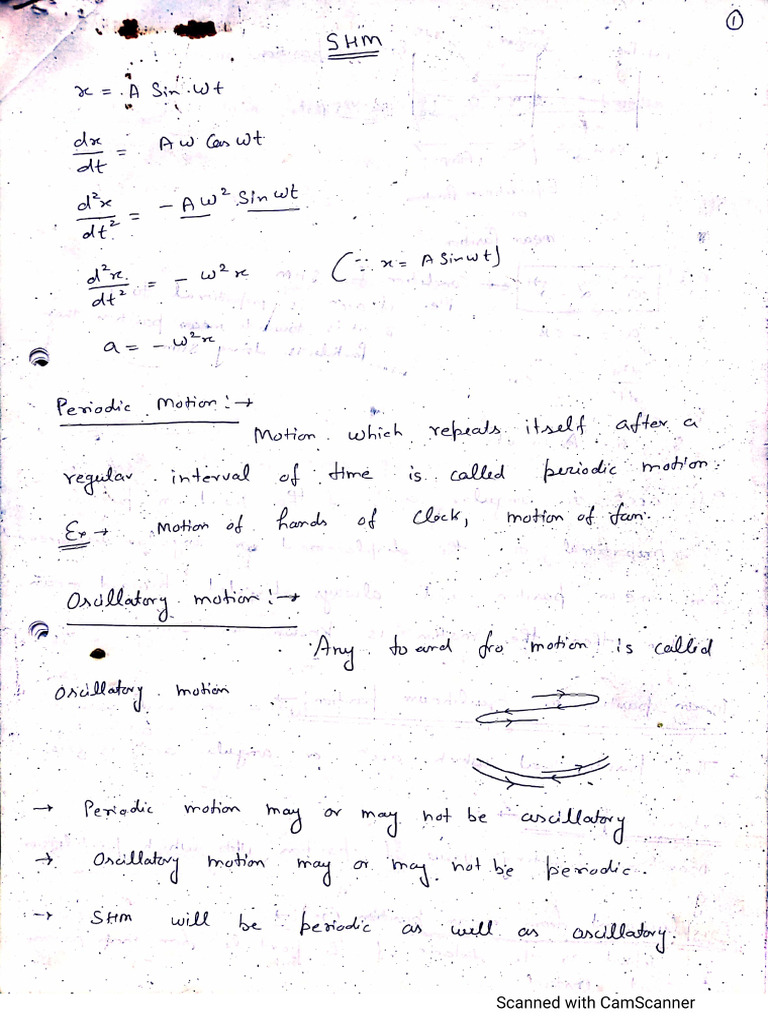 ①
SHM
x = A Sin wt
dx/dt = Aw Cos wt
d²x/dt² = - Aw² Sin wt
d²x/dt² = - w²x (∵ x = A Sin wt)
a = - w²x
Periodic Motion :→
Motion which repeats itself after a
regular interval of time is called periodic motion.
Ex → Motion of hands of Clock, motion of fan.
Oscillatory motion :→
Any to and fro motion is called
oscillatory motion
→ Periodic motion may or may not be oscillatory
→ Oscillatory motion may or may not be periodic.
→ SHM will be periodic as well as oscillatory.
Scanned with CamScanner